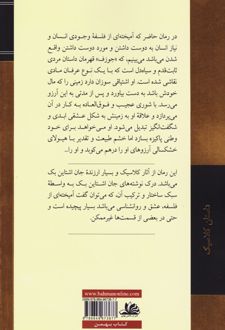 در رمان حاضر که آمیخته‌ای از فلسفهٔ وجودی انسان و
نیاز انسان به دوست داشتن و مورد دوست داشتن واقع
شدن می‌باشد می‌بینیم، که «جوزف» قهرمان داستان مردی
ثابت‌قدم و ساده‌دل است که با یک نوع عرفان مادی
نقاشی شده است. او اشتیاقی سوزان دارد زمینی را که مال
خودش باشد به دست بیاورد و پس از مدتی به این آرزو
می‌رسد. با شوری عجیب و فوق‌العاده به کار در آن
می‌پردازد و علاقهٔ او به زمینش به شکل عشقی ابدی و
شگفت‌انگیز تبدیل می‌شود. او می‌خواهد برای خود
وطنی پاکیزه بسازد اما خشم طبیعت و تقدیر با هیولای
خشکسالی آرزوهای او را درهم می‌کوبد و او را...
این رمان از آثار کلاسیک و بسیار ارزندهٔ جان اشتاین بک
می‌باشد. درک نوشته‌های جان اشتاین بک به واسطهٔ
سبک ساختار و ترکیب آن، که می‌توان گفت آمیخته‌ای از
فلسفه، عشق و روانشناسی می‌باشد بسیار پیچیده است و
حتی در بعضی از قسمت‌ها غیرممکن.
داستان کلاسیک
www.bahmanonline.com
کتاب بهمن